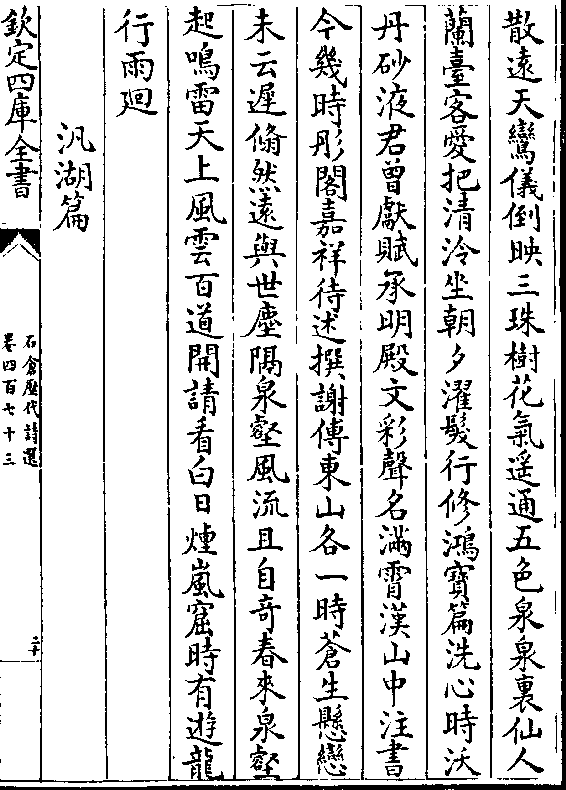 散遠天鸞儀倒映三珠樹花氣遥通五色泉泉裏仙人
蘭臺客愛把清泠坐朝夕濯髮行修鴻寳篇洗心時沃
丹砂液君曾獻賦承明殿文彩聲名滿霄漢山中注書
今幾時彤閣嘉祥待述撰謝傅東山各一時蒼生懸戀
未云遲翛然遠與世塵隔泉壑風流且自竒春來泉壑
起鳴雷天上風雲百道開請看白日煙嵐窟時有遊龍
行雨廻
汎湖篇
欽定四庫全書
石倉歷代詩選
卷四百七十三
二十